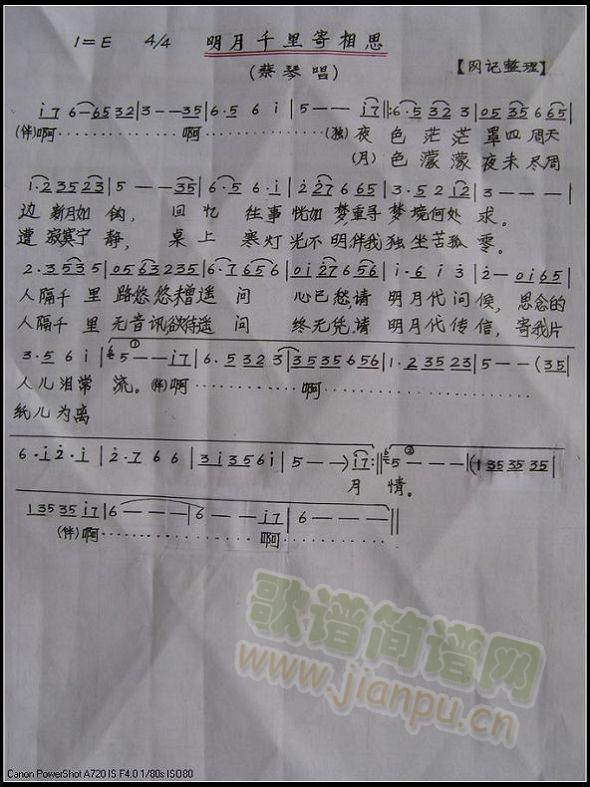 1=E 4/4 明月千里寄相思
(蔡琴唱) 【网记整理】
i̇7 6-6532|3--35|6·5 6 i|5--i̇7|:6·5 32 3|05 35 6 65|
(伴)啊 啊 (独) 夜 色 茫 茫 罩四 周天
(月) 色 濛 濛 夜未 尽周
1·2 35 23|5--35|6·5 6·i̇|2̇ 2̇7 6 65|3·5 2 12|3---|
边 新月如 钩, 回 忆 往事 恍如 梦重寻 梦境何处 求。
遭 寂寞宁 静, 桌 上 寒灯 光不 明伴我 独坐苦孤 零。
2·353 5|05 63 235|6·765 6|0i̇ 2̇7 6 56|i̇·6 i̇ 3̇|2̇-0i̇65|
人隔千 里 路悠悠未曾遥 问 心已愁,请 明月代问候, 思念的
人隔千 里 无音讯欲待遥 问 终无凭,请 明月代传信, 寄我片
3·5 6 i|5--i̇7|6·5 32 3|3535 656|1·2 35 23|5--(35|
人儿泪常 流。(伴)啊 啊
纸儿为离
6·i̇ 2̇·i̇|2̇·7 6 6|3i̇35 6i̇|5--)i̇7:||5---|(135 35 35|
月 情。
135 35 i̇7|6---|6--i̇7|6---||
(伴)啊 啊
歌谱简谱网
www.jianpu.cn
Canon PowerShot A720 IS F4.0 1/80s ISO80